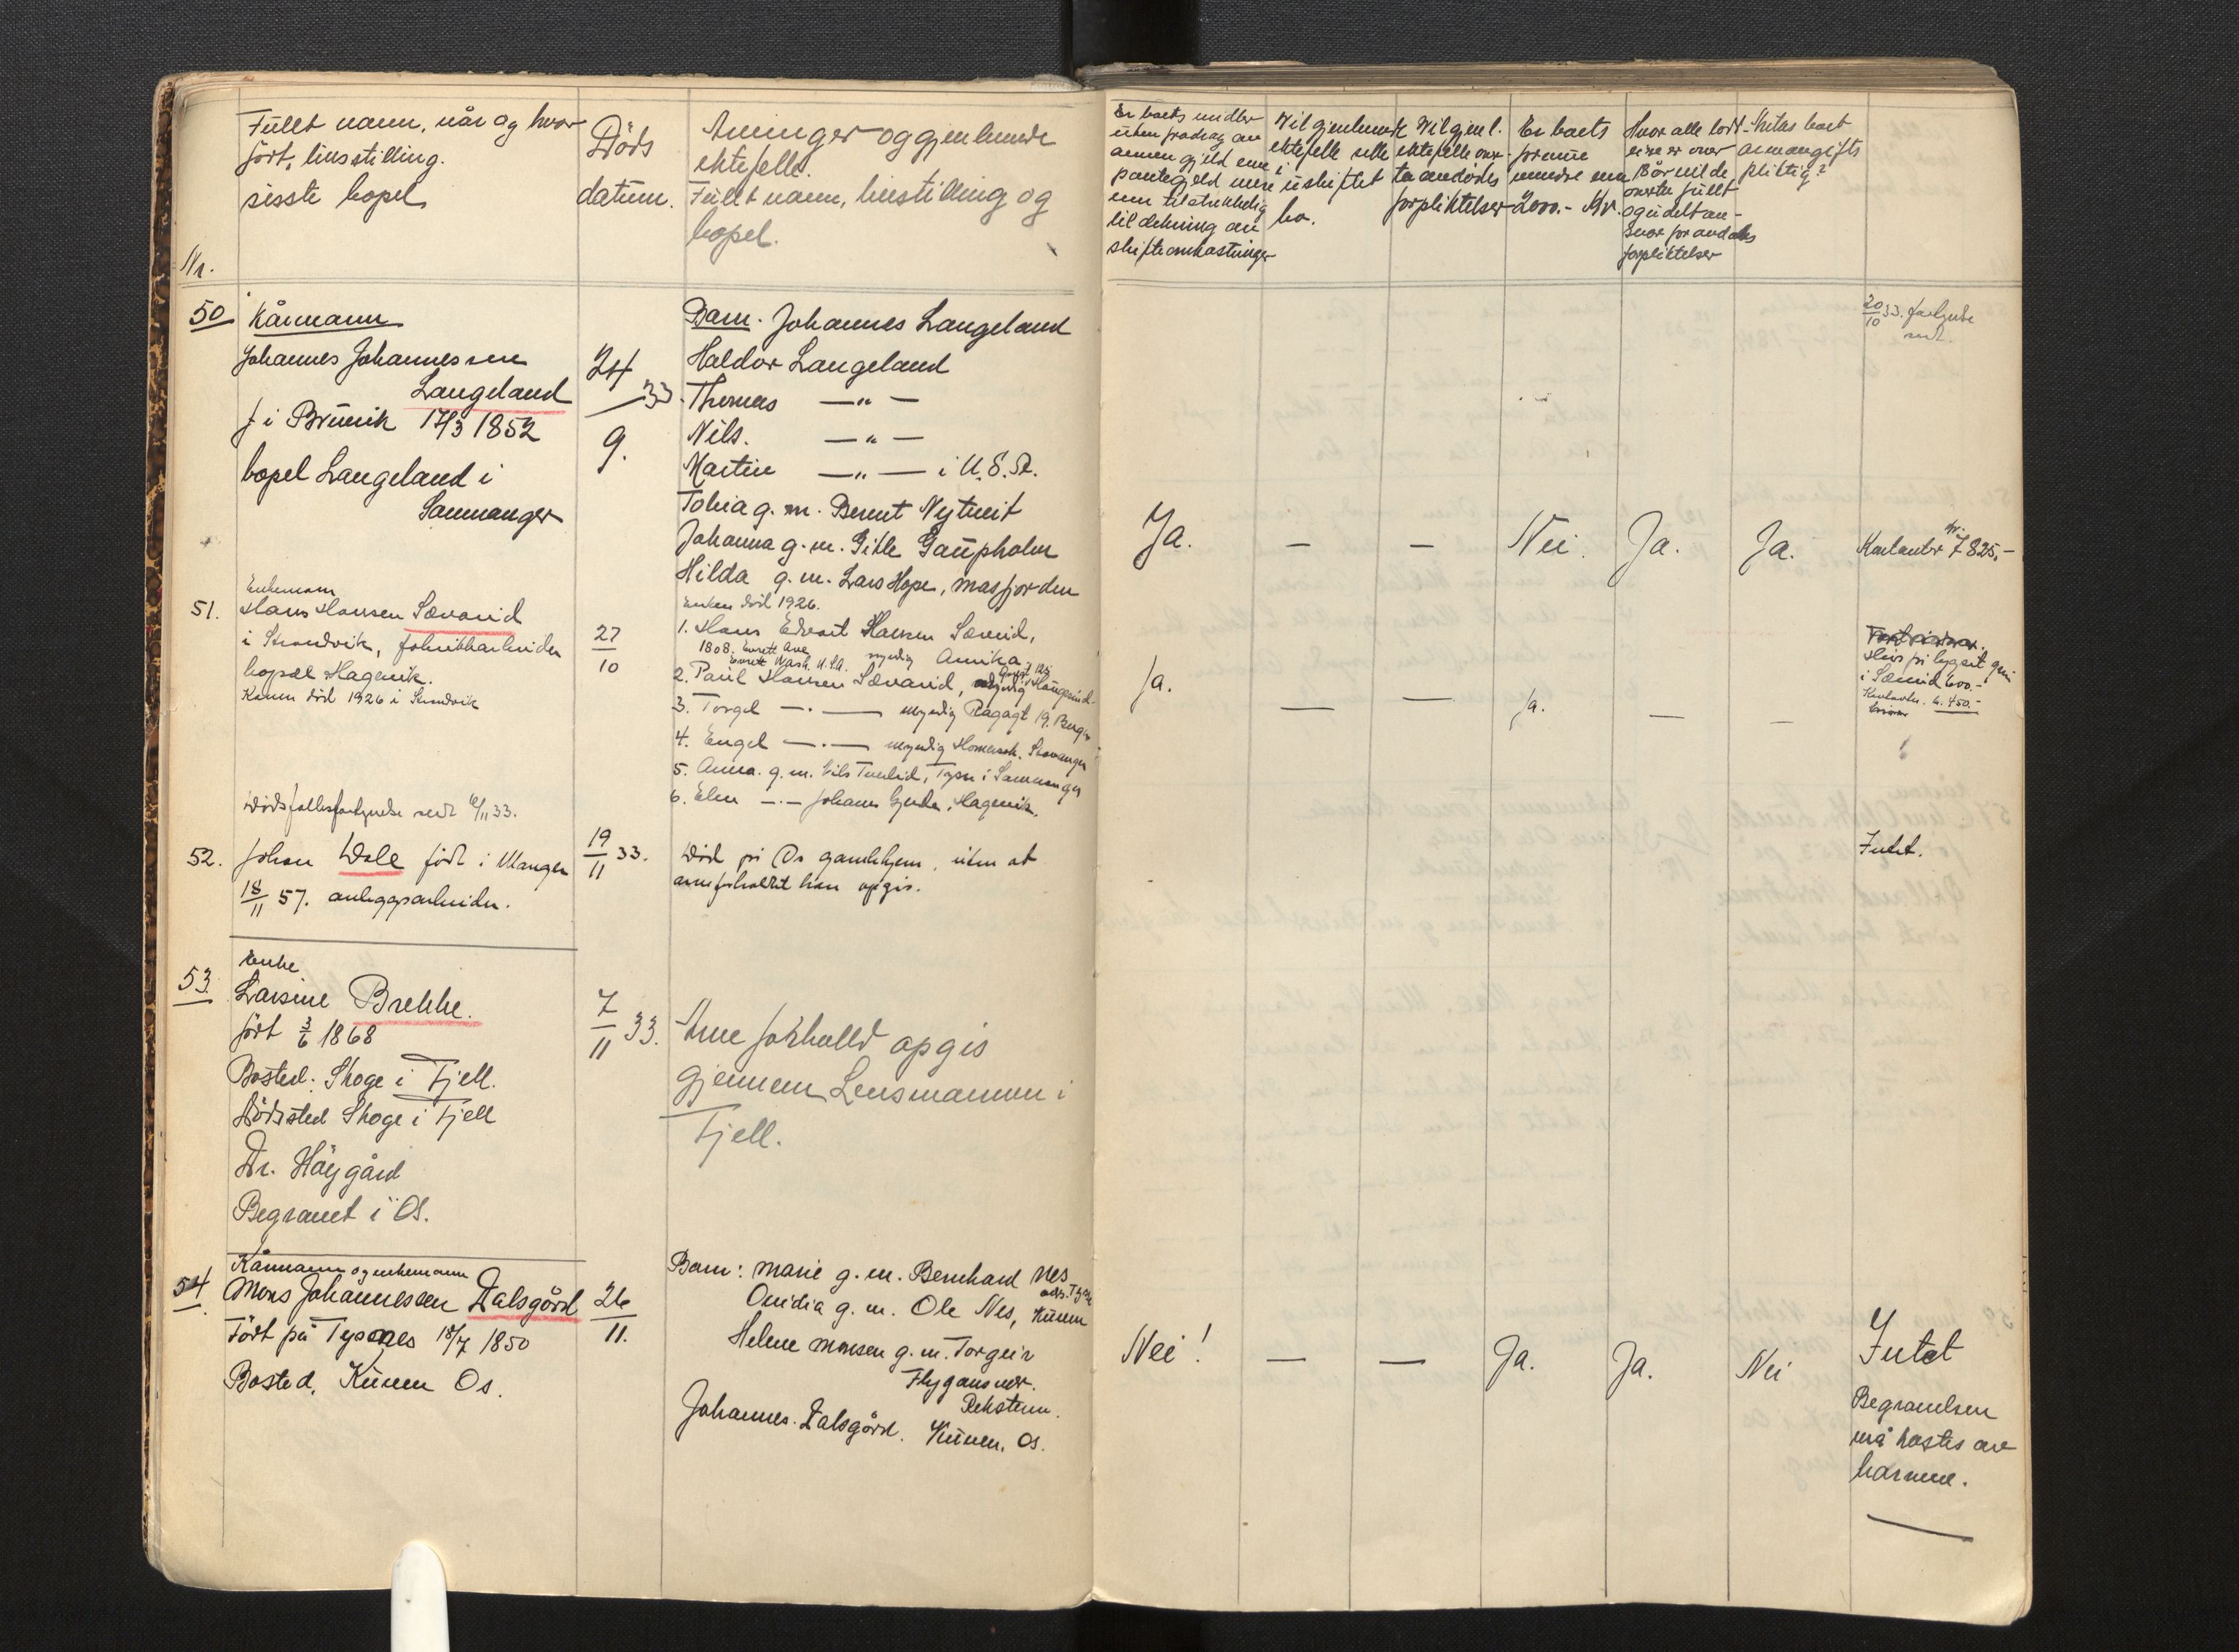 Fullt navn, når og hvor
födt, livsstilling.
sisste bopel
Nr.
Döds
datum.
Arvinger og gjenlevende
ektefelle.
Fullt navn, livsstilling og
bopel.
Er boets midler
uten fradrag av
annen gjeld enn
pantegjeld mere
enn tilstrekkelig
til dekning av
skifteomkostninger
Vil gjenlevende
ektefelle sitte
i uskiftet
bo.
Vil gjenl.
ektefelle over-
ta avdödes
forpliktelser
Er boets
formue
mindre enn
2000.- Kr.
Hvor alle lodd-
eiere er over
18 år vil de
overta fullt
og udelt an-
svar for avdødes
forpliktelser
Antas boet
arveavgifts
pliktig?
50
Kårmann
Johannes Johannessen
Langeland
f i Bruvik 17/3 1852
bopel Langeland i
Samnanger
24
33
9.
Barn. Johannes Langeland
Haldor Langeland
Thomas —"—
Nils. —"—
Martin —"— i U.S.A.
Tobia g. m. Bernt Nytveit
Johanna g. m. Gitle Gaupholm
Hilda g. m. Lars Hope, Masfjorden
20/10 33. forlydende
sendt.
Ja. — — Nei. Ja. Ja.
Kontanter kr. 7825,-
51.
Enkemann
Hans Hansen Sævarid
i Strandvik, fabrikkarbeider
bopæl Hagavik.
Konen död 1926 i Strandvik
27
10
Enken död 1926.
1. Hans Edvart Hansen Sævrid,
1808. Everett Ave
Everett Wash. U.S.A. myndig Amrika
2. Paul Hansen Sævarid, myndig Haugesund
3. Torgel —.— myndig 19. Bergen
4. Engel —.— myndig Stavanger
5. Anna. g. m. Nils Tveleid, Tysse i Samnanger
6. Elen —.— Johann Hagavik.
Ja. — — Ja. — —
Hus på bygset grn
i Sævrid 600.-
Kontanter. kr. 450.-
Dødsfallsforlydende sendt 10/11 33.
52.
Johan Dale födt i Manger
18/11 57. anleggsarbeider.
19/11 33.
Död på Os gamlehjem, uten at
arveforholdet kan opgis.
Intet.
53.
Enke
Larsine Brekke.
födt 3/6 1868
Bosted: Skoge i Fjell.
Dödssted Skoge i Fjell
Dr. Höygård
Begravet i Os.
7/11 33.
Arve forhold opgis
gjennem Lensmannen i
Fjell.
54
Kårmann og enkemann
Mons Johannessen Dalsgård
Födt på Tysnes 18/7 1850
Bosted, Kuven Os.
26
11.
Barn: Marie g. m. Bernhard Nes
Ovidia g. m. Ole Nes, Kuven
Helene Monsen g. m. Torgeir
Flygansvær.
Reksteren.
Johannes. Dalsgård. Kuven, Os.
Nei! — — Ja. Ja. Nei
Intet
Begravelsen
må kostes av
barnene.